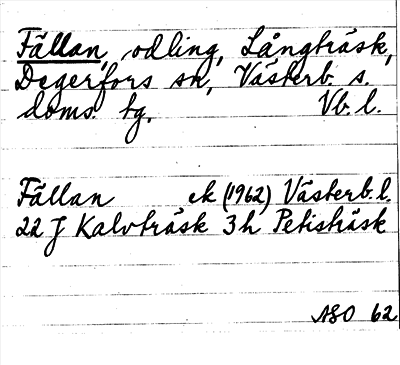 Fällan, odling, Långträsk,
Degerfors sn, Västerb. s.
doms. tg. Vb. l.
Fällan ek (1962) Västerb. l.
22 J Kalvträsk 3h Petisträsk
ASO 62